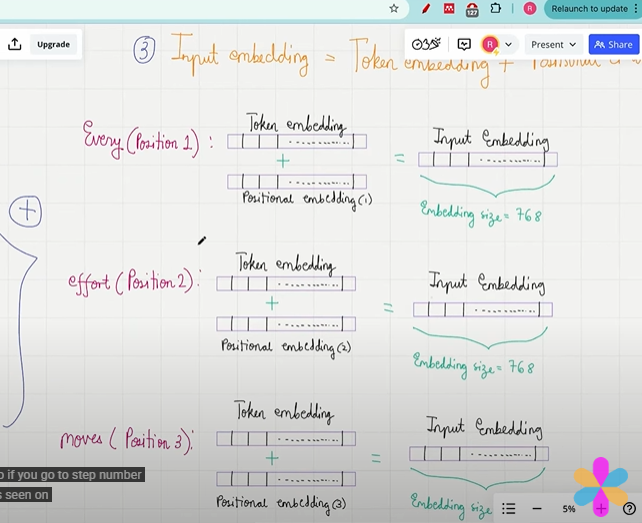 Relaunch to update
127
R
Upgrade
R
Present
Share
3 Input embedding = Token embedding +
Every (Position 1) :
Token embedding
+
Positional embedding (1)
=
Input Embedding
Embedding size = 768
effort (Position 2) :
Token embedding
+
Positional embedding (2)
=
Input Embedding
Embedding size = 768
moves (Position 3) :
Token embedding
+
Positional embedding (3)
=
Input Embedding
Embedding size
if you go to step number
seen on
5%